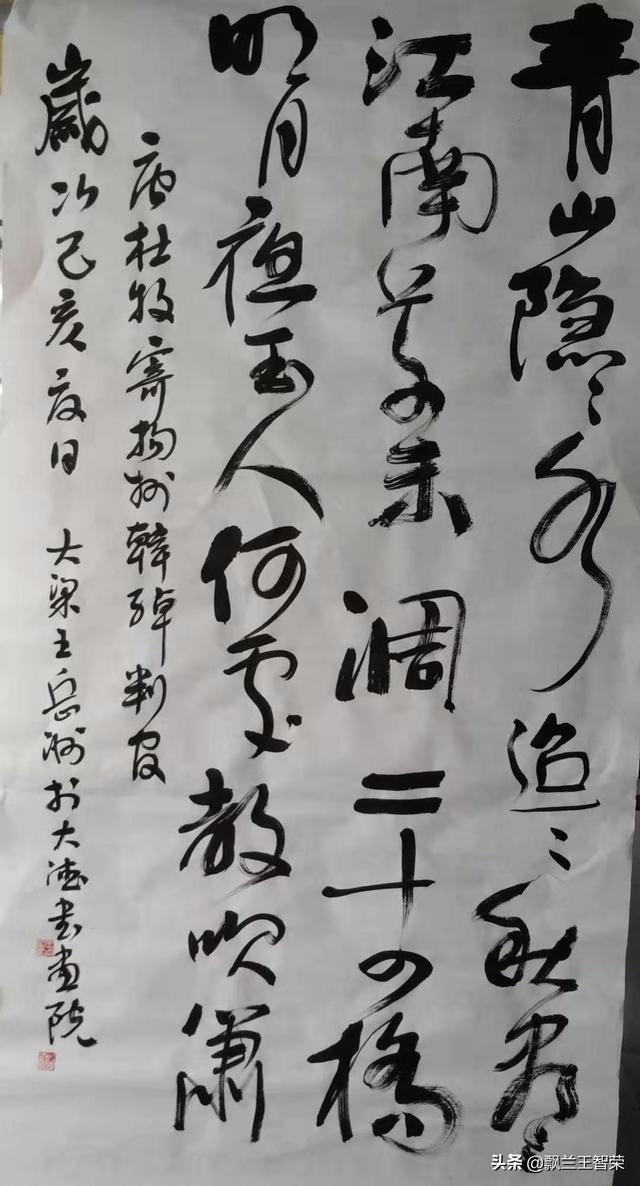 青山隐〻水迢〻秋尽
江南草未凋二十四橋
明月夜玉人何處教吹簫
唐杜牧寄扬州韓綽判官
歲次己亥夏日 大梁王岳洲於大德书画院
头条 @飘兰王智荣